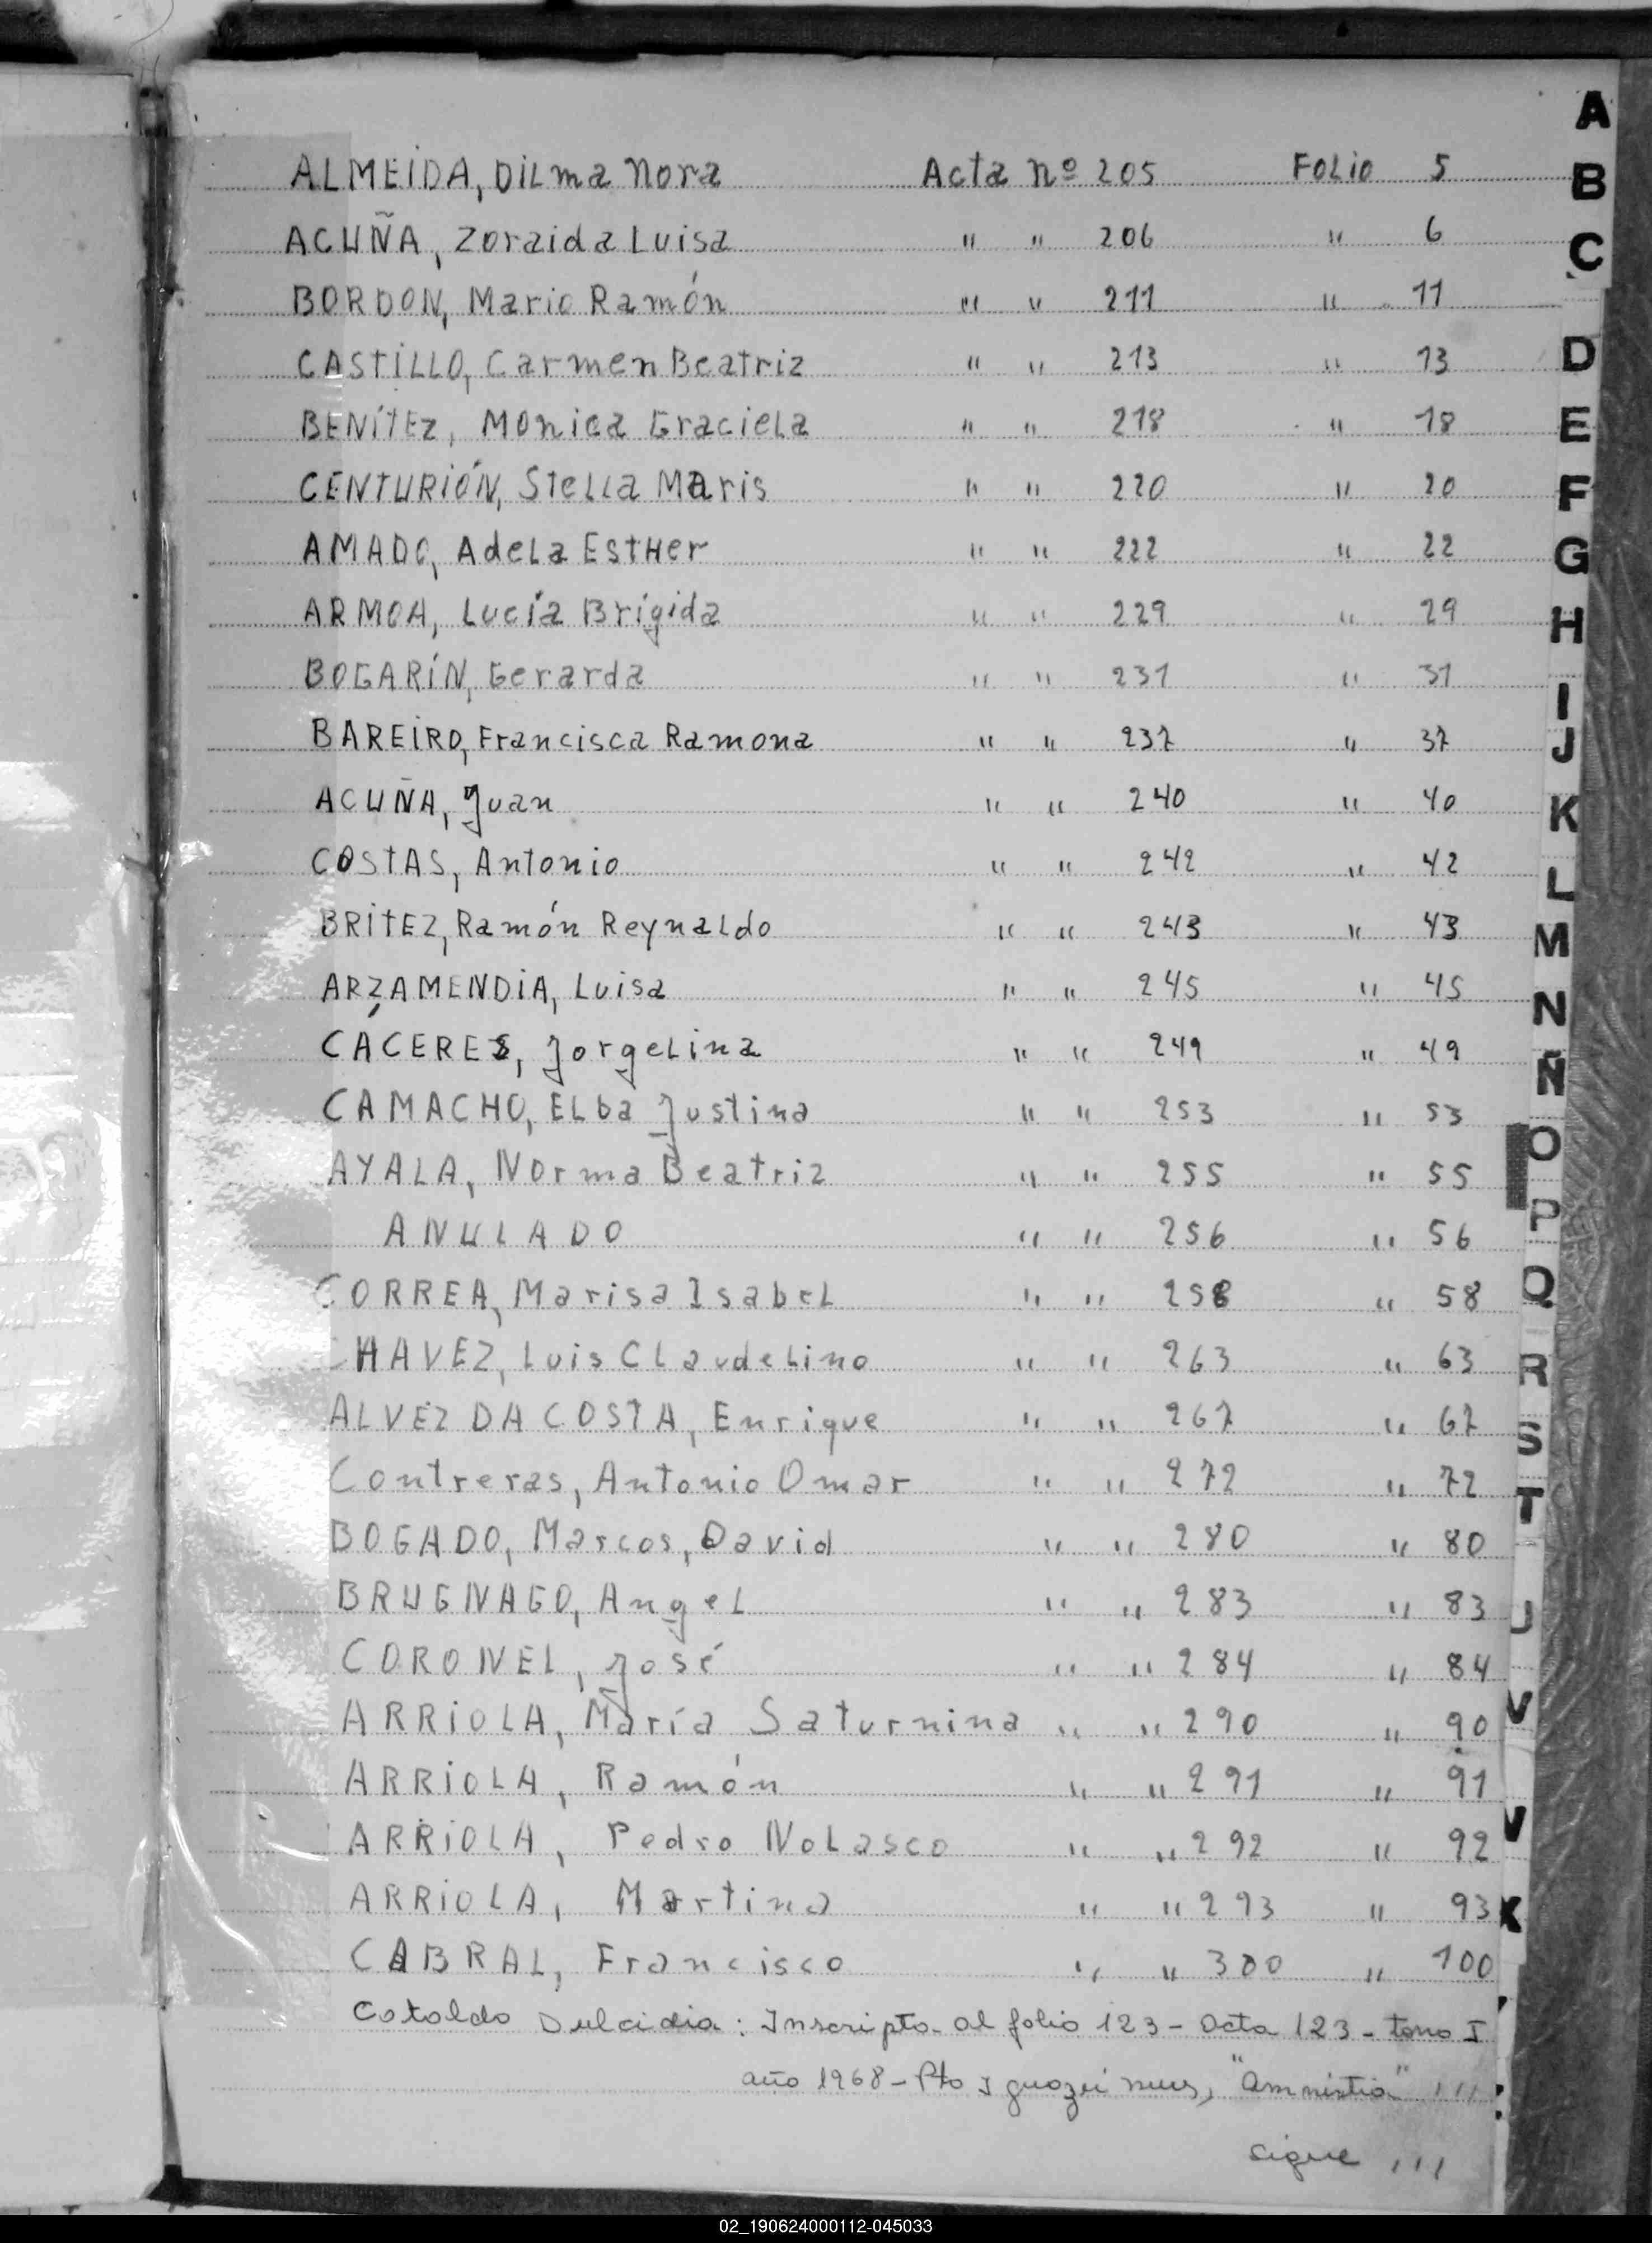 ALMEIDA, Dilma Nora Acta nº 205 Folio 5
ACUÑA, Zoraida Luisa " " 206 " 6
BORDON, Mario Ramón " " 211 " 11
CASTILLO, Carmen Beatriz " " 213 " 13
BENÍTEZ, Monica Graciela " " 218 " 18
CENTURIÓN, Stella Maris " " 220 " 20
AMADO, Adela Esther " " 222 " 22
ARMOA, Lucía Brígida " " 229 " 29
BOGARÍN, Gerarda " " 231 " 31
BAREIRO, Francisca Ramona " " 237 " 37
ACUÑA, Juan " " 240 " 40
COSTAS, Antonio " " 242 " 42
BRITEZ, Ramón Reynaldo " " 243 " 43
ARZAMENDIA, Luisa " " 245 " 45
CÁCERES, Jorgelina " " 249 " 49
CAMACHO, Elba Justina " " 253 " 53
AYALA, Norma Beatriz " " 255 " 55
ANULADO " " 256 " 56
CORREA, Marisa Isabel " " 258 " 58
CHAVEZ, Luis Claudelino " " 263 " 63
ALVEZ DA COSTA, Enrique " " 267 " 67
Contreras, Antonio Omar " " 272 " 72
BOGADO, Marcos, David " " 280 " 80
BRUGNAGO, Angel " " 283 " 83
CORONEL, José " " 284 " 84
ARRIOLA, María Saturnina " " 290 " 90
ARRIOLA, Ramón " " 291 " 91
ARRIOLA, Pedro Nolasco " " 292 " 92
ARRIOLA, Martina " " 293 " 93
CABRAL, Francisco " " 300 " 100
Cataldo Dulcidia: Inscripto al folio 123 - Acta 123 - tomo I
año 1968 - Pto Iguazú "Amnistia" ,,,
sigue ,,,
A
B
C
D
E
F
G
H
I
J
K
L
M
N
Ñ
O
P
Q
R
S
T
U
V
X
02_190624000112-045033